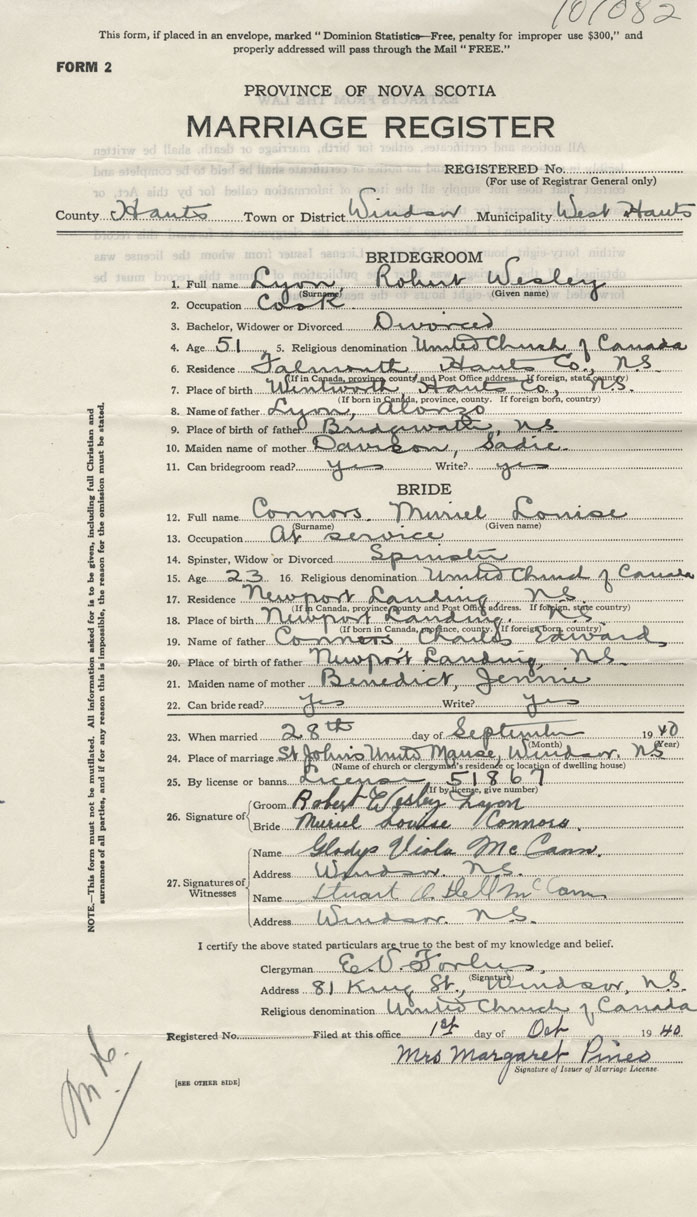 101082
This form, if placed in an envelope, marked "Dominion Statistics—Free, penalty for improper use $300," and
properly addressed will pass through the Mail "FREE."
FORM 2
PROVINCE OF NOVA SCOTIA
MARRIAGE REGISTER
REGISTERED No.
(For use of Registrar General only)
County Hants Town or District Windsor Municipality West Hants
BRIDEGROOM
1. Full name Lyon, Robert Wesley
(Surname) (Given name)
2. Occupation Cook
3. Bachelor, Widower or Divorced Divorced
4. Age 51 5. Religious denomination United Church of Canada
6. Residence Falmouth Hants Co., N.S.
(If in Canada, province, county and Post Office address. If foreign, state country)
7. Place of birth Wentworth Hants Co., N.S.
(If born in Canada, province, county. If foreign born, country)
8. Name of father Lyon, Alonzo
9. Place of birth of father Bridgewater, N.S.
10. Maiden name of mother Davison, Sadie
11. Can bridegroom read? yes Write? yes
BRIDE
12. Full name Connors Muriel Louise
(Surname) (Given name)
13. Occupation At service
14. Spinster, Widow or Divorced Spinster
15. Age 23 16. Religious denomination United Church of Canada
17. Residence Newport Landing, N.S.
(If in Canada, province, county and Post Office address. If foreign, state country)
18. Place of birth Newport Landing, N.S.
(If born in Canada, province, county. If foreign born, country)
19. Name of father Connors Charles Edward
20. Place of birth of father Newport Landing, N.S.
21. Maiden name of mother Benedict, Jennie
22. Can bride read? Yes Write? Yes
23. When married 28th day of September 1940
(Month) (Year)
24. Place of marriage St John's United Manse, Windsor. N.S
(Name of church or clergyman's residence or location of dwelling house)
25. By license or banns License, 51867
(If by license, give number)
26. Signature of
Groom Robert Wesley Lyon
Bride Muriel Louise Connors.
27. Signatures of Witnesses
Name Gladys Viola McCann.
Address Windsor N.S.
Name Stuart McCann
Address Windsor. N.S.
I certify the above stated particulars are true to the best of my knowledge and belief.
Clergyman E.V. Forbes,
(Signature)
Address 81 King St., Windsor, N.S.
Religious denomination United Church of Canada
Registered No. Filed at this office 1st day of Oct 1940.
Mrs Margaret Pineo
Signature of Issuer of Marriage License
[SEE OTHER SIDE]
NOTE.—This form must not be mutilated. All information asked for is to be given, including full Christian and
surnames of all parties, and if for any reason this is impossible, the reason for the omission must be stated.